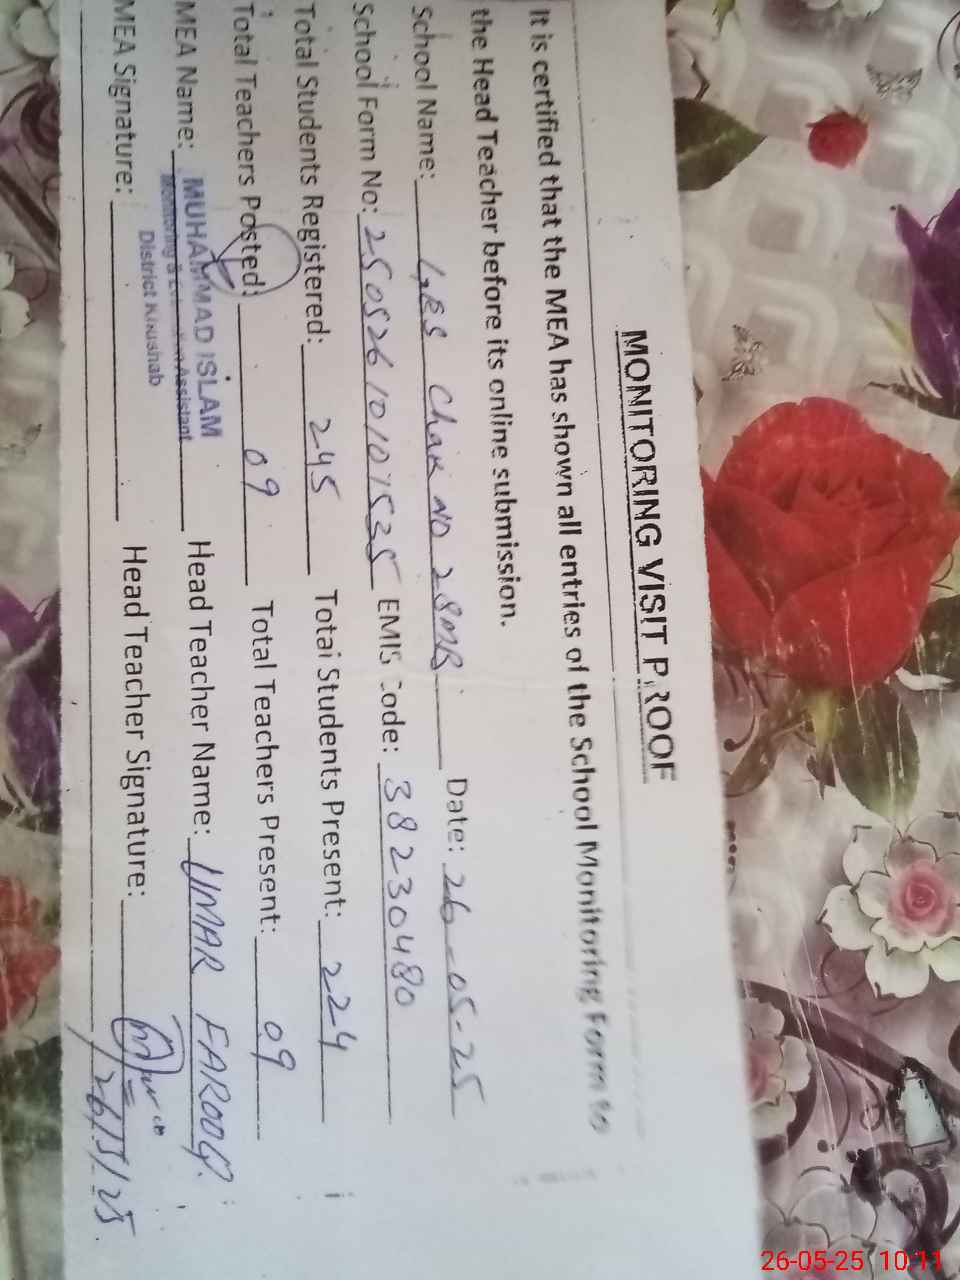 MONITORING VISIT PROOF
It is certified that the MEA has shown all entries of the School Monitoring Form to
the Head Teacher before its online submission.
School Name: GES Chak NO 28MB Date: 26-05-25
School Form No: 25052610107535 EMIS Code: 38230480
Total Students Registered: 245 Total Students Present: 224
Total Teachers Posted: 09 Total Teachers Present: 09
MEA Name: MUHAMMAD ISLAM Head Teacher Name: UMAR FAROOQ.
Monitoring & Assistant
District Khushab
MEA Signature: Head Teacher Signature:
26/5/25
26-05-25 10:11